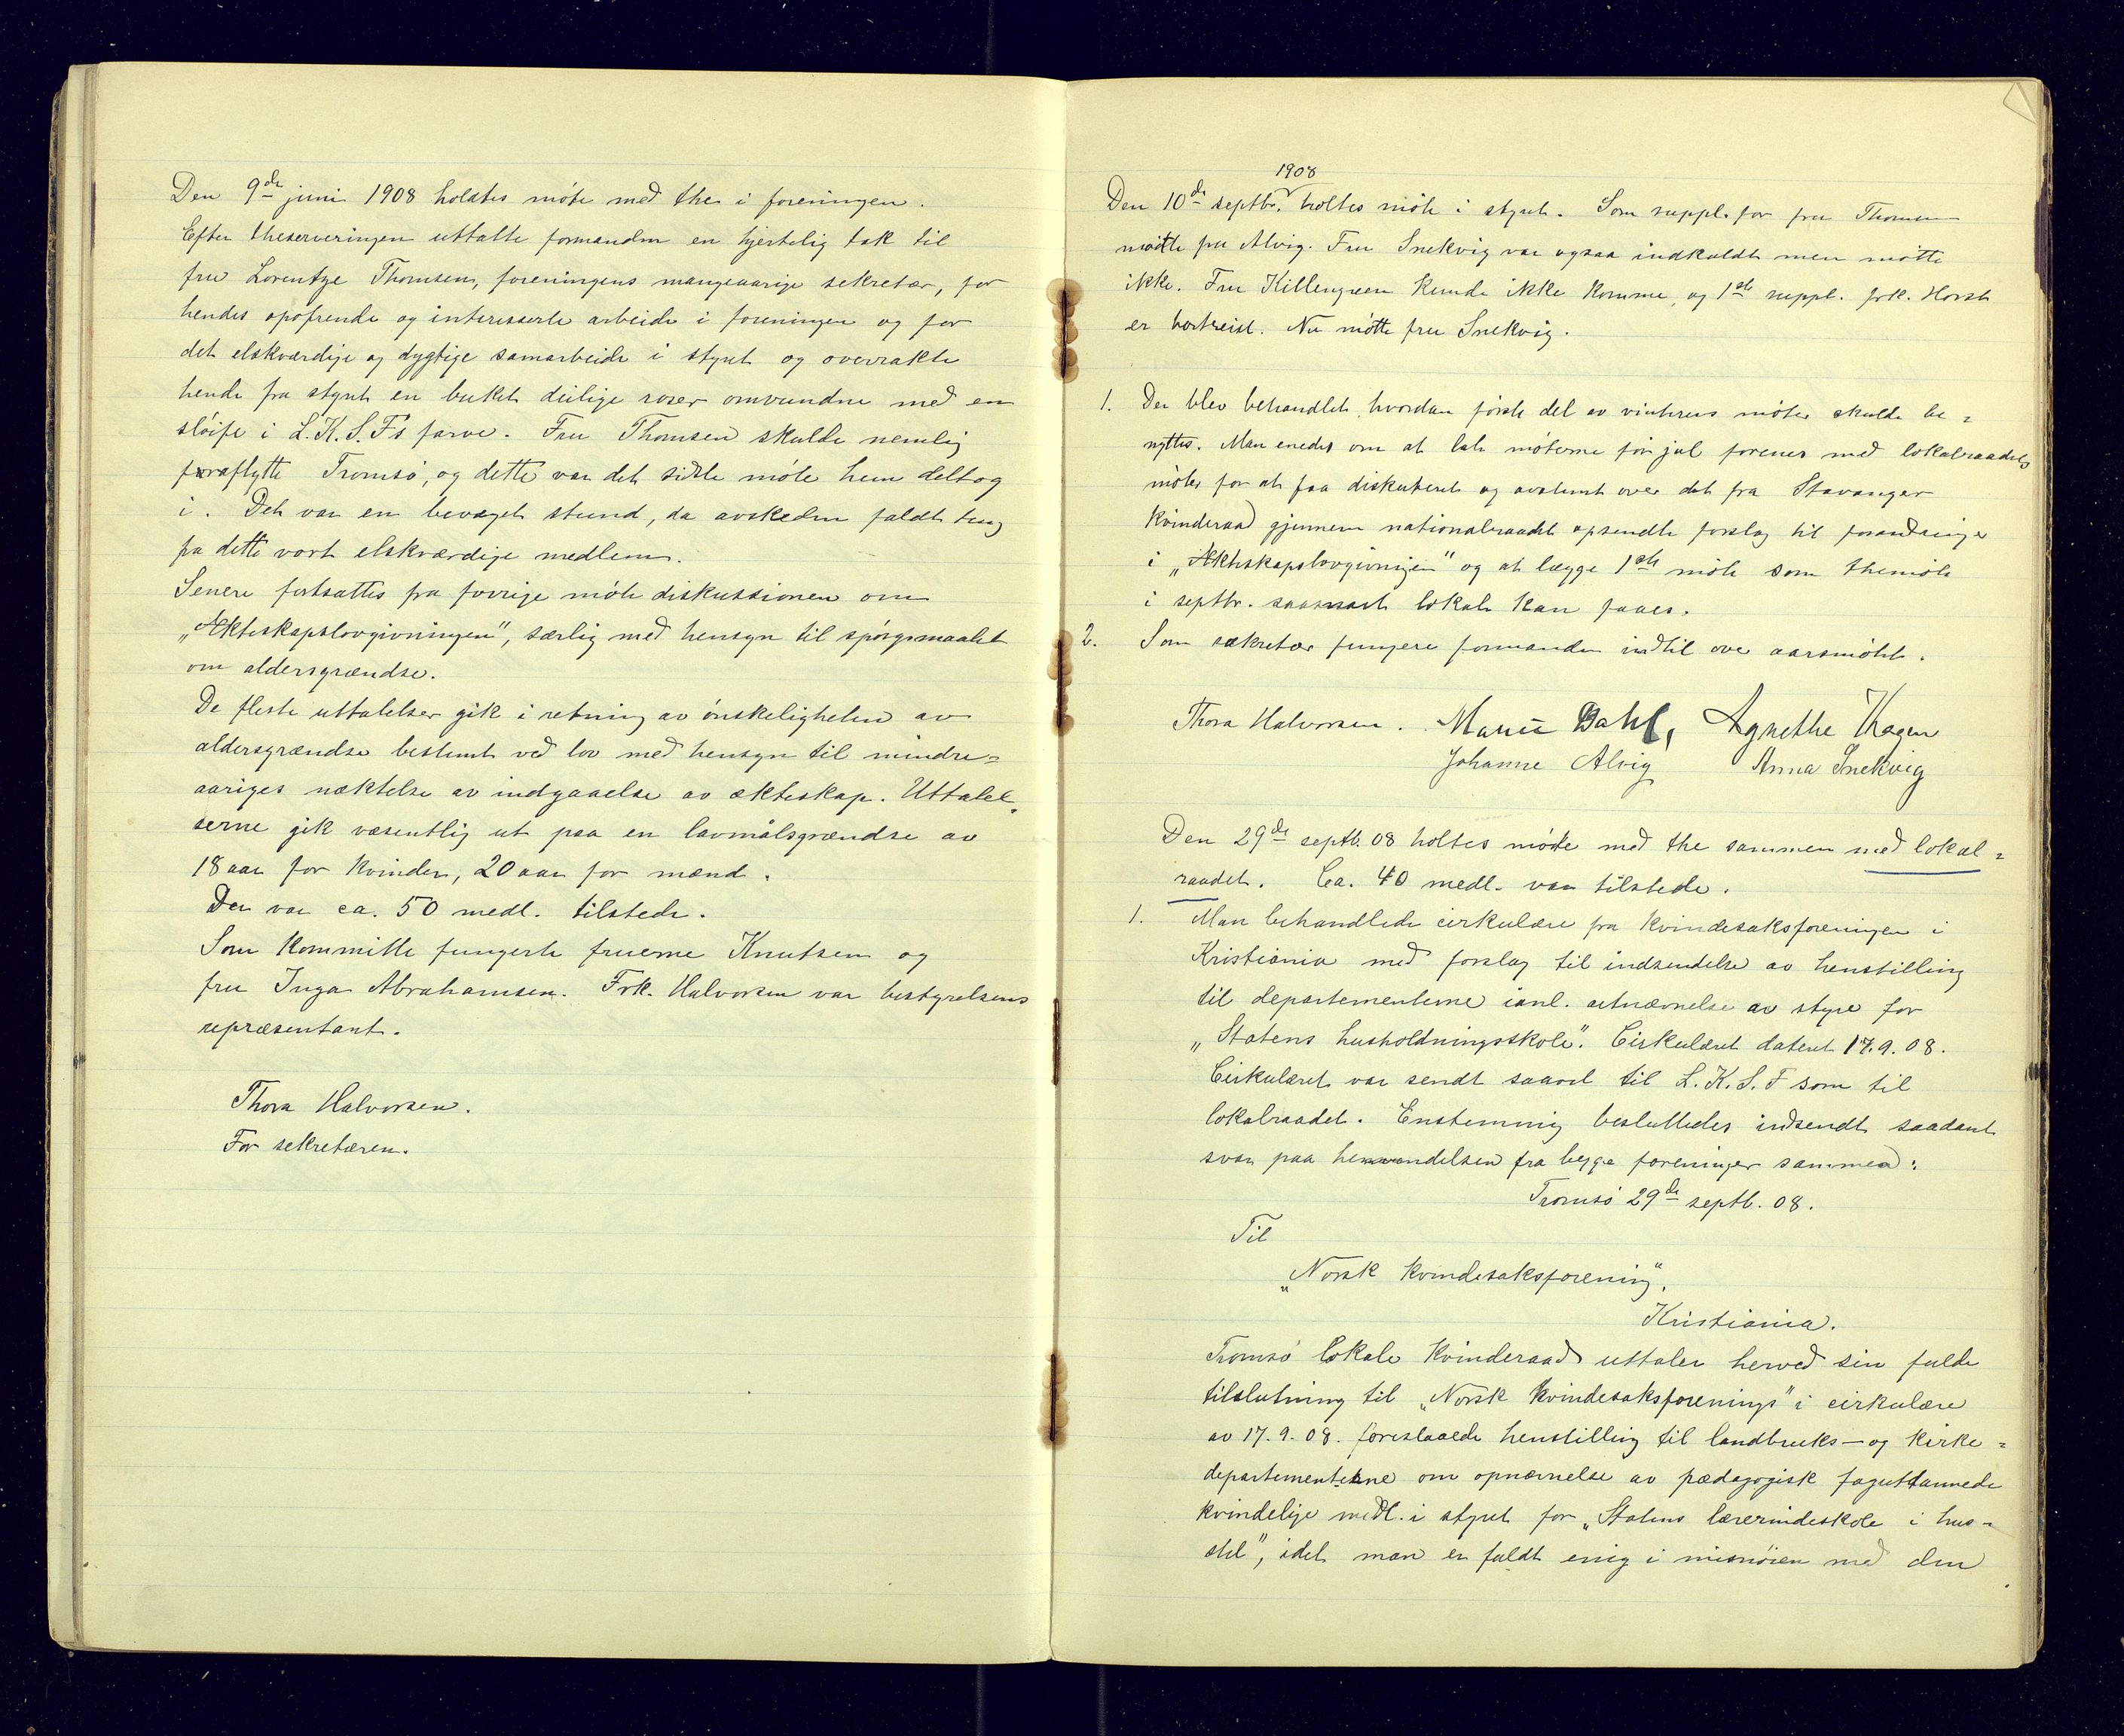 Den 9de juni 1908 holdtes møte med the i foreningen.
Efter theserveringen uttalte formanden en hjertelig tak til
fru Lorentze Thomsen, foreningens mangeaarige sekretær, for
hendes opofrende og interesserte arbeide i foreningen og for
det elskværdige og dygtige samarbeide i styret og overrakte
hende fra styret en buket deilige roser omvundne med en
sløife i L.K.S.F's farve. Fru Thomsen skulde nemlig
fraflytte Tromsø, og dette var det sidste møte hun deltog
i. Det var en bevæget stund, da avskeden faldt tung
fra dette vort elskværdige medlem.
Senere fortsattes fra forrige møte diskussionen om
„Ækteskapslovgivningen", særlig med hensyn til spørgsmaalet
om aldersgrændse.
De fleste uttalelser gik i retning av ønskeligheten av
aldersgrændse bestemt ved lov med hensyn til mindre=
aariges næktelse av indgaaelse av ækteskap. Uttalel=
serne gik væsentlig ut paa en lavmålsgrændse av
18 aar for kvinder, 20 aar for mænd.
Der var ca. 50 medl. tilstede.
Som kommitte fungerte fruerne Knutsen og
fru Inga Abrahamsen. Frk. Halvorsen var bestyrelsens
repræsentant.
Thora Halvorsen.
For sekretæren.
1908
Den 10de septbr. holtes møte i styret. Som suppl. for fru Thomsen
møtte fru Alvig. Fru Snekvig var ogsaa indkaldt men møtte
ikke. Fru Killengreen kunde ikke komme, og 1ste suppl. frk. Horst
er bortreist. Nu møtte fru Snekvig.
1. Der blev behandlet hvordan første del av vinterens møter skulde be=
nyttes. Man enedes om at late møterne før jul forenes med lokalraadets
møter for at faa diskuteret og avstemt over det fra Stavanger
Kvinderaad gjennem nationalraadet opsendte forslag til forandringer
i „Ækteskapslovgivningen" og at lægge 1ste møte som themøte
i septbr. saasnart lokale kan faaes.
2. Som sekretær fungere formanden indtil over aarsmøtet.
Thora Halvorsen. Marie Dahl, Agnethe Hagen
Johanne Alvig Anna Snekvig
Den 29de septb. 08 holtes møte med the sammen med lokal=
raadet. Ca. 40 medl. var tilstede.
1. Man behandlede cirkulære fra kvindesaksforeningen i
Kristiania med forslag til indsendelse av henstilling
til departementerne ianl. utnævnelse av styre for
„Statens husholdningsskole". Cirkulæret dateret 17.9.08.
Cirkulæret var sendt saavel til L.K.S.F som til
lokalraadet. Enstemmig besluttedes indsendt saadant
svar paa henvendelsen fra begge foreninger sammen:
Tromsø 29de septb. 08.
Til
„Norsk kvindesaksforening".
Kristiania.
Tromsø lokale kvinderaad uttaler herved sin fulde
tilslutning til „Norsk kvindesaksforenings" i cirkulære
av 17.9.08. foreslaaede henstilling til landbruks- og kirke=
departementerne om opnævnelse av pædagogisk faguddannede
kvindelige medl. i styret for „Statens lærerindeskole i hus=
stel", idet man er fuldt enig i misnøien med den